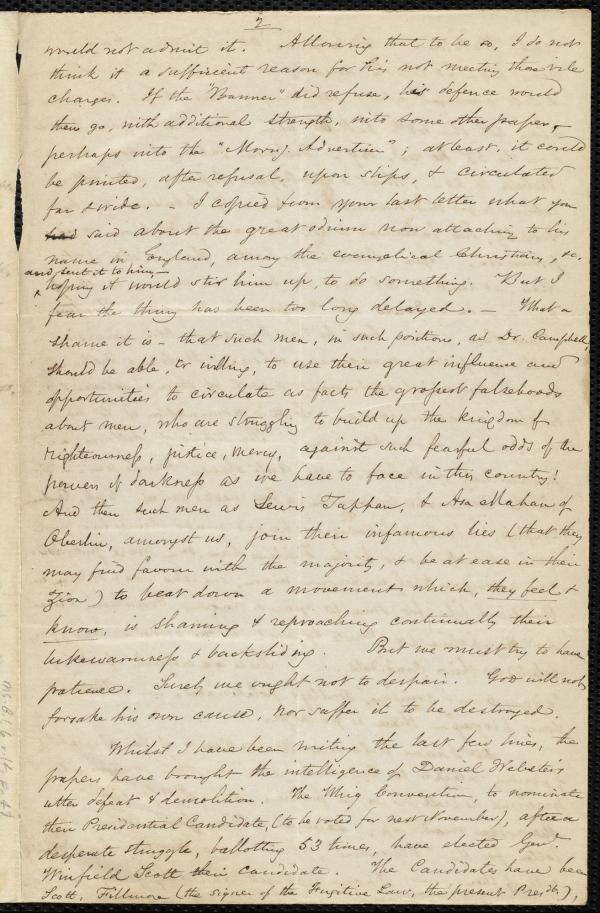 2
would not admit it. Allowing that to be so, I do not
think it a sufficient reason for his not meeting those vile
charges. If the "Banner" did refuse, his defence would
then go, with additional strength, into some other paper, -
perhaps into the "Morng. Advertiser"; at least, it could
be printed, after refusal, upon slips, & circulated
far & wide. - I copied from your last letter what you
had said about the great odium now attaching to his
name in England, among the evangelical Christians, &c.
and sent it to him -
hoping it would stir him up, to do something. But I
fear the thing has been too long delayed. - What a
shame it is - that such men, in such positions, as Dr. Campbell,
should be able, or willing, to use their great influence and
opportunities to circulate as facts the grossest falsehoods
about men, who are struggling to build up the kingdom of
righteousness, justice, mercy, against such fearful odds of the
powers of darkness as we have to face in this country!
And then such men as Lewis Tappan, & Asa Mahan of
Oberlin, amongst us, join their infamous lies (that they
may find favour with the majority, & be at ease in their
Zion) to beat down a movement which, they feel &
know, is shaming & reproaching continually their
lukewarmness & backsliding. But we must try to have
patience. Surely we ought not to despair. God will not
forsake his own cause, nor suffer it to be destroyed.
Whilst I have been writing the last few lines, the
papers have brought the intelligence of Daniel Webster's
utter defeat & demolition. The Whig Convention, to nominate
their Presidential Candidate, (to be voted for next November), after a
desperate struggle, ballotting 53 times, have elected Genl.
Winfield Scott their candidate. The Candidates have been
Scott, Fillmore (the signer of the Fugitive Law, the present Presdt.),